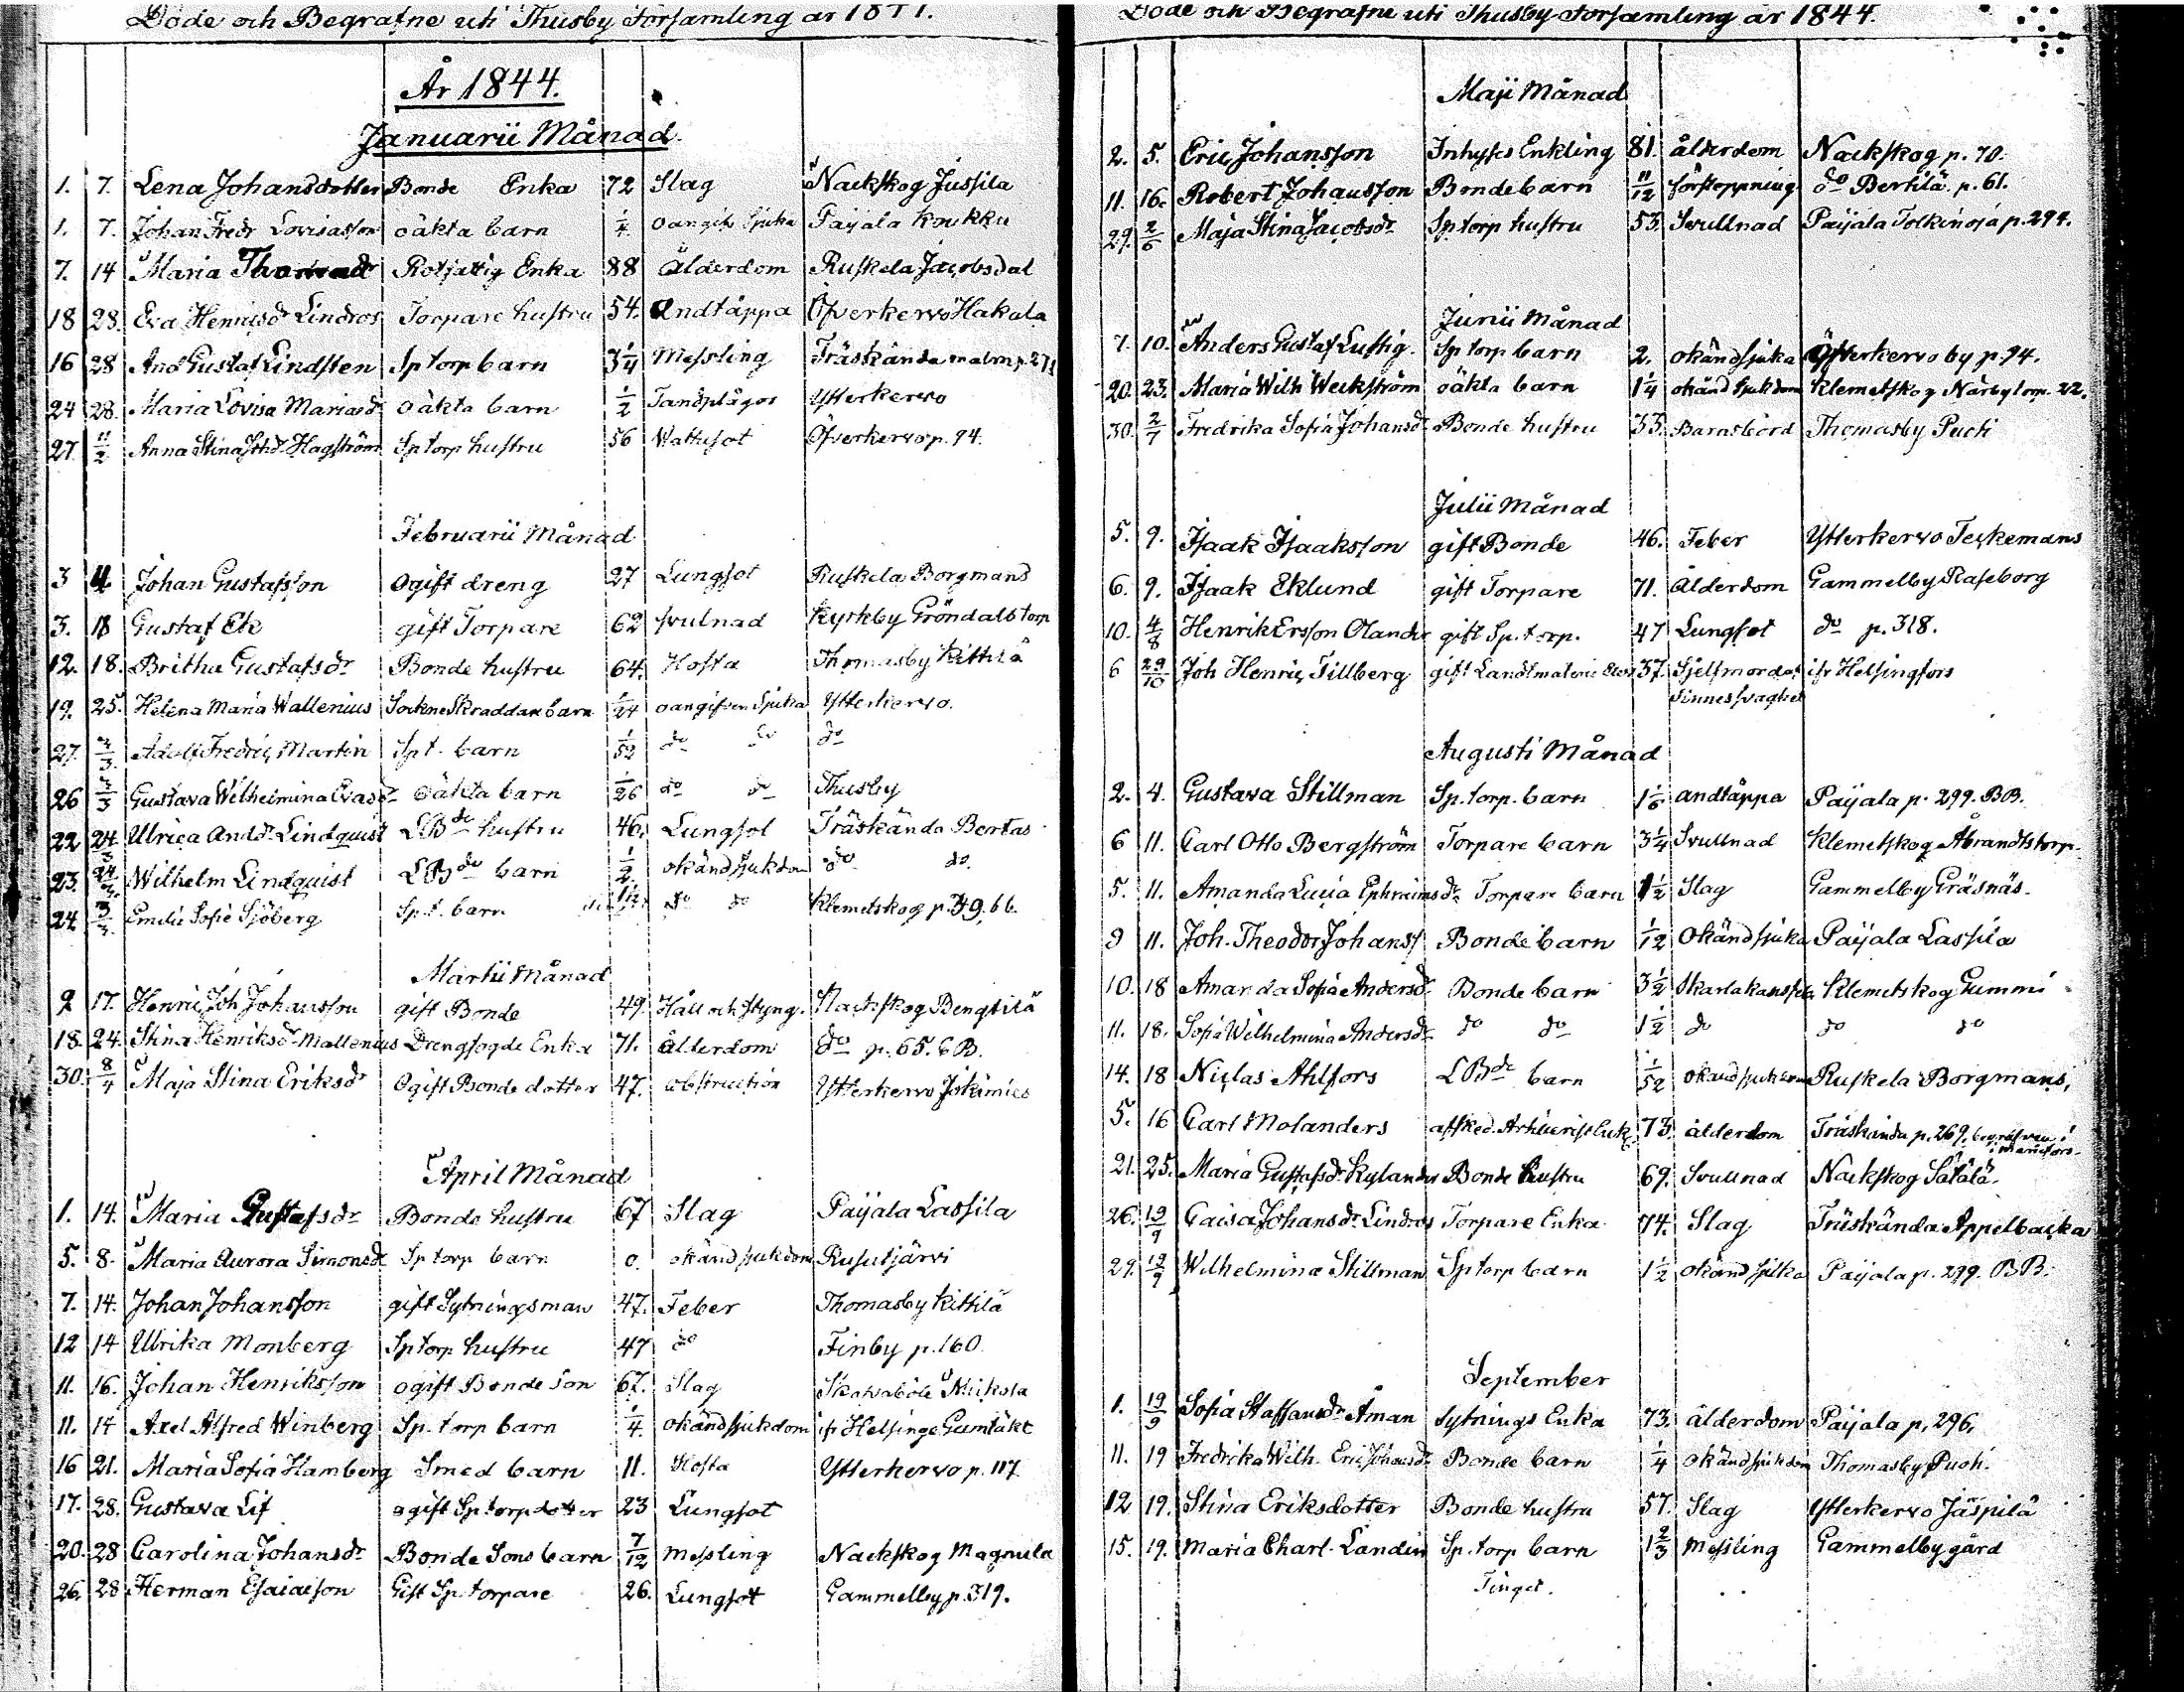 Döde och Begrafne uti Thusby Församling år 1844.
År 1844.
Januarii Månad.
1. 7. Lena Johansdotter Bonde Enka 72 Slag Nackskog Jussila
1. 7. Johan Fredr Lovisasson oäkta barn 1/4 oangifv Sjuka Paijala Koukku
7. 14 Maria Rotfattig Enka 88 Ålderdom Ruskela Jacobsdal
18 28. Eva Henricsdr Lindros Torpare hustru 54. Andtäppa Öfverkervo Hakala
16 28 And Gustaf Lindsten Sptorp barn 3 1/4 Messling Träskända malm p. 271
24 28. Maria Lovisa Mariasdr oäkta barn 1/2 Tandplågor Ytterkervo
27. 11/2 Anna Stina Hagström Sptorp hustru 56 Wattusot Öfverkervo p. 94.
Februarii Månad
3 4 Johan Gustafsson Ogift dreng 27 Lungsot Ruskela Borgmans
3. 18 Gustaf Ek gift Torpare 62 svulnad Kyrkby Gröndalstorp
12. 18. Britha Gustafsdr Bonde hustru 64. Hosta Thomasby Kittilä
19. 25. Helena Maria Wallenius Sockne Skraddare barn 1/24 oangifven Sjuka Ytterkervo.
27. 3/3 Adolf Fredric Martin Spt. barn 1/52 do do do
26 3/3 Gustava Wilhelmina Evasdr oäkta barn 1/26 do do Thusby
22 24/3 Ulrica Anddr Lindquist LBde hustru 46. Lungsot Träskända Bertas
23. 24/3 Wilhelm Lindquist LBde barn 1/2. okänd sjukdom do do.
24 3/3 Emilie Sofie Sjöberg Sp.t. barn 1 1/2 do do Klemetskog p. 39, 66.
Martii Månad
9 17. Henric Joh Johansson gift Bonde 49. Håll och styng. Nackskog Bengtilä
18. 24. Stina Henriksdr Mallenius Drengfogde Enka 71. ålderdom do p. 65. BB.
30. 8/4 Maja Stina Eriksdr Ogift Bonde dotter 47. obstruction Ytterkervo Jokimies
April Månad
1. 14. Maria Gustafsdr Bonde hustru 67 Slag Paijala Lassila
5. 8. Maria Aurora Simonsdr Sp torp barn 0. okänd sjukdom Rusutjärvi
7. 14. Johan Johansson gift Sytningsman 47. Feber Thomasby Kittilä
12 14 Ulrika Monberg Sptorp hustru 47 do Finby p. 160.
11. 16. Johan Henriksson ogift Bonde Son 67. Slag Skavaböle Mickola
11. 14 Axel Alfred Winberg Sp. torp barn 1/4. okänd sjukdom ifr Helsinge Gumtäkt
16 21. Maria Sofia Hamberg Smed barn 11. Hosta Ytterkervo p. 117.
17. 28. Gustava Lif ogift Sp. torp dotter 23 Lungsot
20. 28 Carolina Johansdr Bonde Sons barn 7/12 messling Nackskog Magnula
26. 28 Herman Esaiasson Gift Sp. torpare 26. Lungsot Gammelby p. 319.
Döde och Begrafne uti Thusby Församling år 1844.
Maji Månad
2. 5. Eric Johansson Inhyses Enkling 81. ålderdom Nackskog p. 70.
11. 16. Robert Johansson Bonde barn 11/12 förstoppning do Bertilä p. 61.
29. 2/6 Maja Stina Jacobsdr Sp torp hustru 53. Svullnad Paijala Tolkinoja p. 294.
Junii Månad
7. 10. Anders Gustaf Lustig. Sp torp barn 2. okänd sjuka Ytterkervo by p. 94.
20. 23. Maria Wilh Weckström oäkta barn 1 1/4 okänd sjukdom Klemetskog Närby torp. 22.
30. 2/7 Fredrika Sofia Johansdr Bonde hustru 33. Barnsbörd Thomasby Puoti
Julii Månad
5. 9. Isaak Isaksson gift Bonde 46. Feber Ytterkervo Teckemans
6. 9. Isaak Eklund gift Torpare 71. Ålderdom Gammelby Raseborg
10. 4/8 Henrik Ersson Olander gift Sp. torp. 47 Lungsot do p. 318.
6 29/10 Joh Henric Tillberg gift Landtmäterie Elev 37. Sjelfmord af ifr Helsingfors
Sinnessvaghet
Augusti Månad
2. 4. Gustava Stillman Sp. torp. barn 1 1/6 andtäppa Paijala p. 299. BB.
6 11. Carl Otto Bergström Torpare barn 3 1/4 Svullnad Klemetskog Åbrandtstorp.
5. 11. Amanda Lucia Ephraimsdr Torpare barn 1 1/2 Slag Gammelby Gräsnäs.
9 11. Joh. Theodor Johanss Bonde barn 1/12 Okänd sjuka Paijala Lassila
10. 18 Amanda Sofia Andersdr Bonde barn 3 1/2 Skarlakansfeb Klemetskog Gummi
11. 18. Sofia Wilhelmina Andersdr do do 1 1/2 do do do
14. 18 Niclas Ahlfors LBde barn 1/52 okänd sjukdom Ruskela Borgmans,
5. 16 Carl Molanders afsked. 73. ålderdom Träskända p. 269. begrafven i
21. 25. Maria Gustafsdr Kylander Bonde hustru 69. Svullnad Nackskog Sätälä.
26. 19/9 Caisa Johansdr Lindros Torpare Enka 74. Slag Träskända Appelbacka
29. 19/9 Wilhelmina Stillman Sp torp barn 1 1/2 okänd sjuka Paijala p. 299. BB.
September
1. 19/9 Sofia Staffansdr Åman Sytnings Enka 73. ålderdom Paijala p. 296.
11. 19 Fredrika Wilh. Eric Johansdr Bonde barn 1/4 okänd sjukdom Thomasby Puoti.
12 19. Stina Eriksdotter Bonde hustru 57. Slag Ytterkervo Jäspilä
15. 19. Maria Charl. Landin Sp. torp barn 1 2/3 Messling Gammelby gård
Tinget.